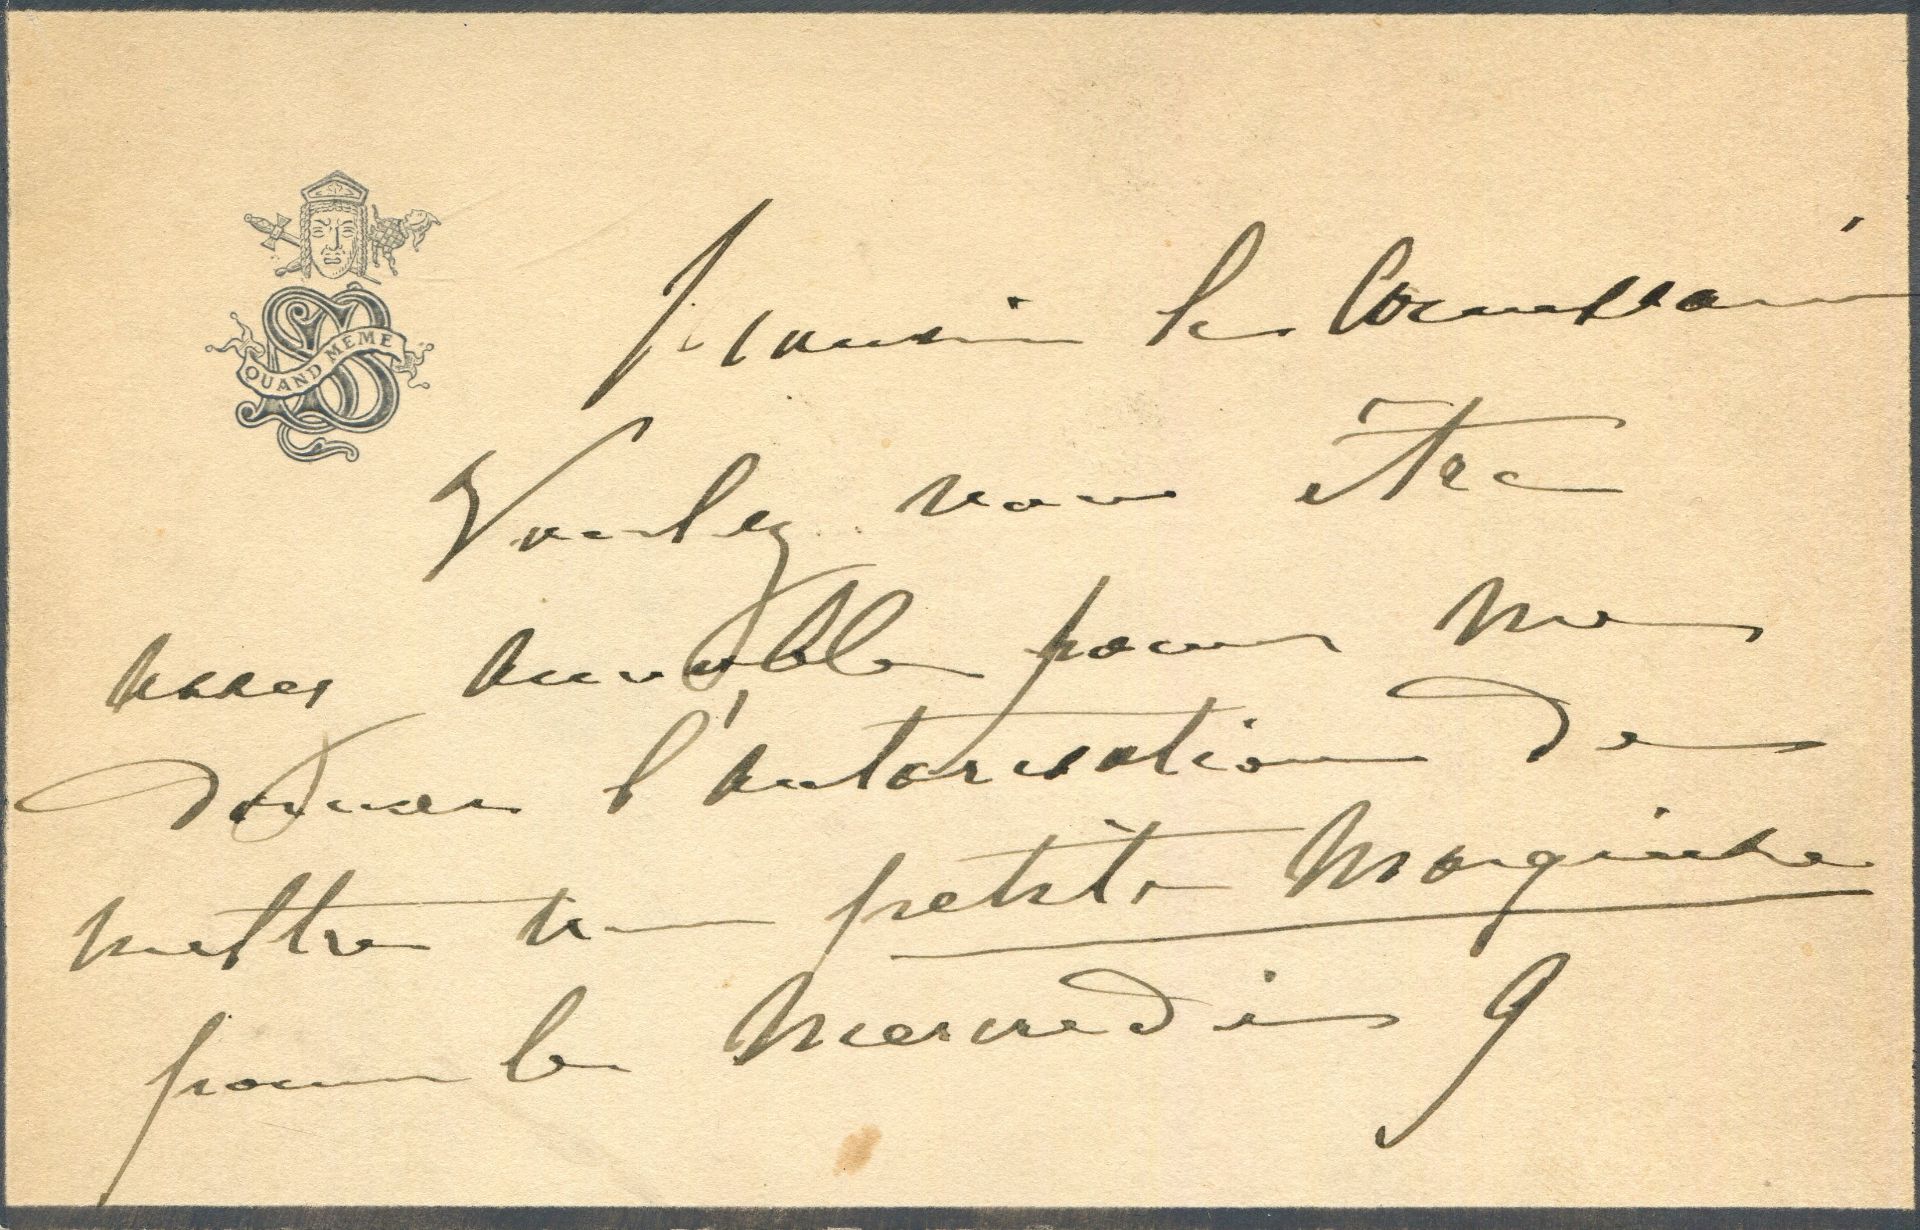 QUAND MEME
Monsieur le Commissaire
Voulez vous être
assez aimable pour me
donner l'autorisation de
mettre une petite Marquise
pour le Mercredi 9